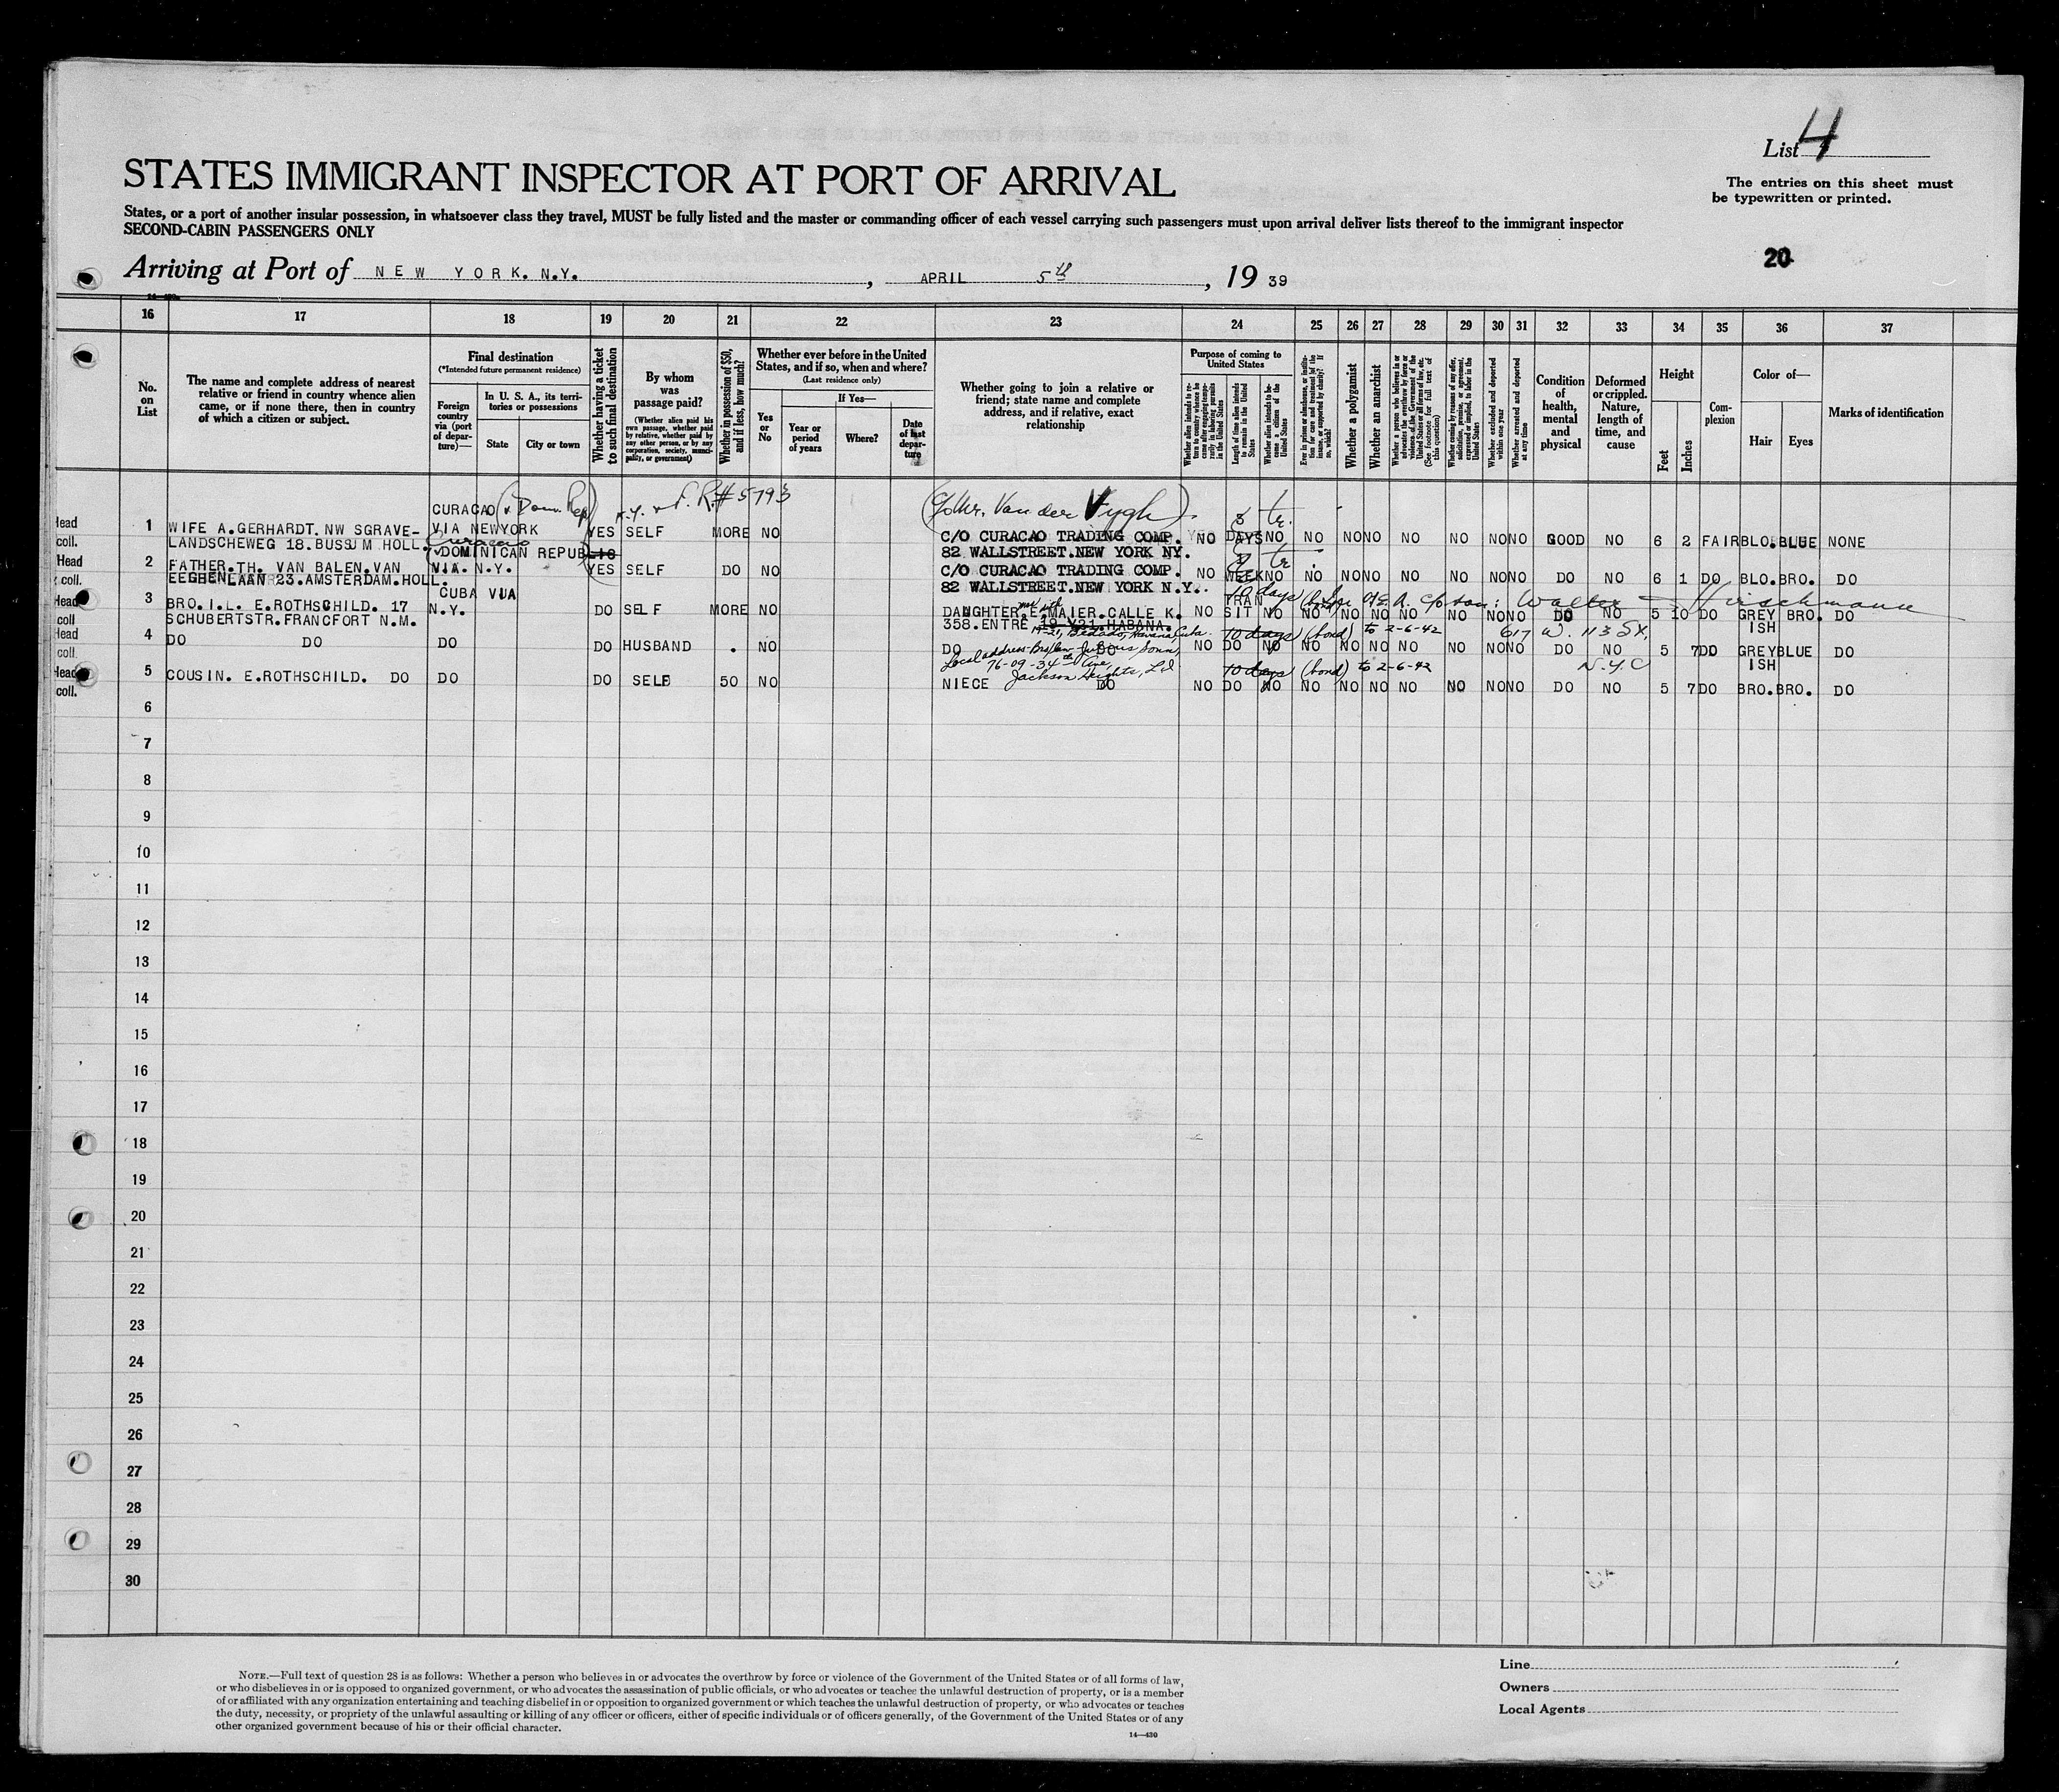 List 4
The entries on this sheet must
be typewritten or printed.
STATES IMMIGRANT INSPECTOR AT PORT OF ARRIVAL
States, or a port of another insular possession, in whatsoever class they travel, MUST be fully listed and the master or commanding officer of each vessel carrying such passengers must upon arrival deliver lists thereof to the immigrant inspector
SECOND-CABIN PASSENGERS ONLY
20
Arriving at Port of NEW YORK. N.Y. , APRIL 5th , 19 39
16 17 18 19 20 21 22 23 24 25 26 27 28 29 30 31 32 33 34 35 36 37
No. on List
The name and complete address of nearest relative or friend in country whence alien came, or if none there, then in country of which a citizen or subject.
Final destination
(*Intended future permanent residence)
Foreign country via (port of departure)—
In U. S. A., its territories or possessions
State
City or town
Whether having a ticket to such final destination
By whom was passage paid?
(Whether alien paid his own passage, whether paid by relative, whether paid by any other person, or by any corporation, society, municipality, or government)
Whether in possession of $50, and if less, how much?
Whether ever before in the United States, and if so, when and where?
(Last residence only)
Yes or No
If Yes—
Year or period of years
Where?
Date of last departure
Whether going to join a relative or friend; state name and complete address, and if relative, exact relationship
Purpose of coming to United States
Whether alien intends to return to country whence he came after engaging temporarily in laboring pursuits in the United States
Length of time alien intends to remain in the United States
Whether alien intends to become a citizen of the United States
Ever in prison or almshouse, or institution for care and treatment of the insane, or supported by charity? If so, which?
Whether a polygamist
Whether an anarchist
Whether a person who believes in or advocates the overthrow by force or violence of the Government of the United States or all forms of law, etc. (See footnote for full text of this question)
Whether coming by reasons of any offer, solicitation, promise, or agreement, expressed or implied, to labor in the United States
Whether excluded and deported within one year
Whether arrested and deported at any time
Condition of health, mental and physical
Deformed or crippled. Nature, length of time, and cause
Height
Feet
Inches
Complexion
Color of—
Hair
Eyes
Marks of identification
CURACAO (& Dom. Rep) # 5793 (C/o Mr. Van der Vygh) 8 tr.
1 WIFE A.GERHARDT.NW SGRAVE- VIA NEWYORK YES SELF MORE NO C/O CURACAO TRADING COMP. NO DAYS NO NO NO NO NO NO NO NO GOOD NO 6 2 FAIR BLO. BLUE NONE
LANDSCHEWEG 18.BUSSUM HOLL. Curacao DOMINICAN REPUBLIC 82 WALLSTREET.NEW YORK NY. tr.
2 FATHER.TH. VAN BALEN.VAN VIA. N.Y. YES SELF DO NO C/O CURACAO TRADING COMP. NO WEEK NO NO NO NO NO NO NO NO DO NO 6 1 DO BLO. BRO. DO
EEGHENLAAN 23.AMSTERDAM.HOLL. CUBA VIA 82 WALLSTREET.NEW YORK N.Y. TRAN days Walter Hirschmann
3 BRO.I.L. E.ROTHSCHILD. 17 N.Y. DO SELF MORE NO DAUGHTER.E.MAIER.CALLE K. NO SIT NO NO NO NO NO NO NO NO DO NO 5 10 DO GREY BRO. DO
SCHUBERTSTR.FRANCFORT N.M. 358.ENTRE 19 Y21.HABANA. ISH
19-21, Bedado, Havana, Cuba. 10 days (bond) to 2-6-42 617 W. 113 St,
4 DO DO DO DO HUSBAND . NO DO DO NO DO NO NO NO NO NO NO NO NO DO NO 5 7 DO GREY BLUE DO
Local address- ISH
76-09-34th Ave, Jackson Heights, L.I. 10 days (bond) to 2-6-42 N.Y.C
5 COUSIN. E.ROTHSCHILD. DO DO DO SELF 50 NO NIECE DO NO DO NO NO NO NO NO NO NO NO DO NO 5 7 DO BRO. BRO. DO
6
7
8
9
10
11
12
13
14
15
16
17
18
19
20
21
22
23
24
25
26
27
28
29
30
NOTE.—Full text of question 28 is as follows: Whether a person who believes in or advocates the overthrow by force or violence of the Government of the United States or of all forms of law,
or who disbelieves in or is opposed to organized government, or who advocates the assassination of public officials, or who advocates or teaches the unlawful destruction of property, or is a member
of or affiliated with any organization entertaining and teaching disbelief in or opposition to organized government or which teaches the unlawful destruction of property, or who advocates or teaches
the duty, necessity, or propriety of the unlawful assaulting or killing of any officer or officers, either of specific individuals or of officers generally, of the Government of the United States or of any
other organized government because of his or their official character.
14—430
Line
Owners
Local Agents